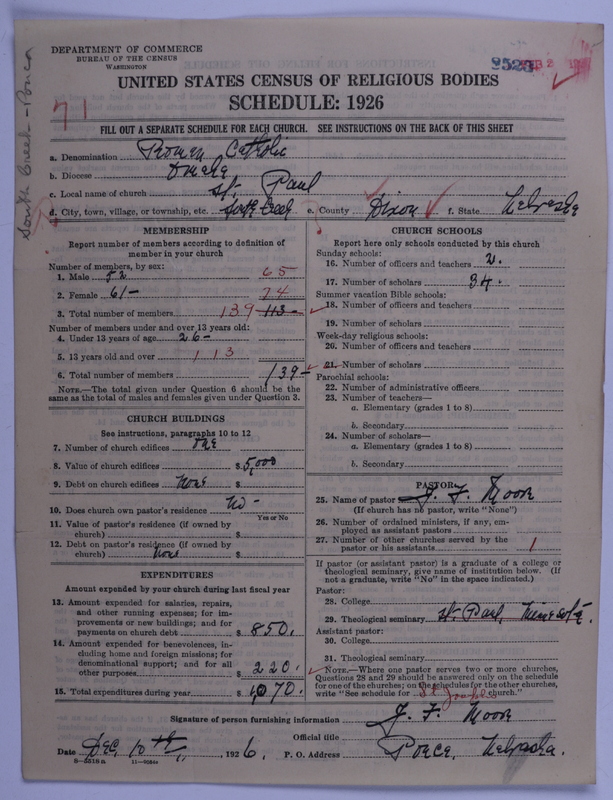 DEPARTMENT OF COMMERCE
BUREAU OF THE CENSUS
WASHINGTON
UNITED STATES CENSUS OF RELIGIOUS BODIES
SCHEDULE: 1926
71
FILL OUT A SEPARATE SCHEDULE FOR EACH CHURCH. SEE INSTRUCTIONS ON THE BACK OF THIS SHEET
South Creek - Ponca
a. Denomination Roman Catholic
b. Diocese Omaha
c. Local name of church St. Paul
d. City, town, village, or township, etc. South Creek e. County Dixon f. State Nebraska
MEMBERSHIP
Report number of members according to definition of
member in your church
Number of members, by sex:
1. Male 52 65
2. Female 61- 74
3. Total number of members 139 113-
Number of members under and over 13 years old:
4. Under 13 years of age 26-
5. 13 years old and over 113
6. Total number of members 139-
NOTE.—The total given under Question 6 should be the
same as the total of males and females given under Question 3.
CHURCH BUILDINGS
See instructions, paragraphs 10 to 12
7. Number of church edifices one
8. Value of church edifices $ 5,000
9. Debt on church edifices None $
10. Does church own pastor's residence No-
Yes or No
11. Value of pastor's residence (if owned by
church) $
12. Debt on pastor's residence (if owned by
church) None $
EXPENDITURES
Amount expended by your church during last fiscal year
13. Amount expended for salaries, repairs,
and other running expenses; for im-
provements or new buildings; and for
payments on church debt $ 850.
14. Amount expended for benevolences, in-
cluding home and foreign missions; for
denominational support; and for all
other purposes $ 220.
15. Total expenditures during year $ 1,070.
CHURCH SCHOOLS
Report here only schools conducted by this church
Sunday schools:
16. Number of officers and teachers 2.
17. Number of scholars 34.
Summer vacation Bible schools:
18. Number of officers and teachers
19. Number of scholars
Week-day religious schools:
20. Number of officers and teachers
21. Number of scholars
Parochial schools:
22. Number of administrative officers
23. Number of teachers—
a. Elementary (grades 1 to 8)
b. Secondary
24. Number of scholars—
a. Elementary (grades 1 to 8)
b. Secondary
PASTOR
25. Name of pastor J. F. Moore
(If church has no pastor, write "None")
26. Number of ordained ministers, if any, em-
ployed as assistant pastors
27. Number of other churches served by the
pastor or his assistants 1
If pastor (or assistant pastor) is a graduate of a college or
theological seminary, give name of institution below. (If
not a graduate, write "No" in the space indicated.)
Pastor:
28. College
29. Theological seminary St. Paul, Minnesota.
Assistant pastor:
30. College
31. Theological seminary
NOTE.—Where one pastor serves two or more churches,
Questions 28 and 29 should be answered only on the schedule
for one of the churches; on the schedules for the other churches,
write "See schedule for St Joseph's church."
Signature of person furnishing information J. F. Moore
Official title
Date Dec. 10th, 1926. P. O. Address Ponca, Nebraska.
11—9084